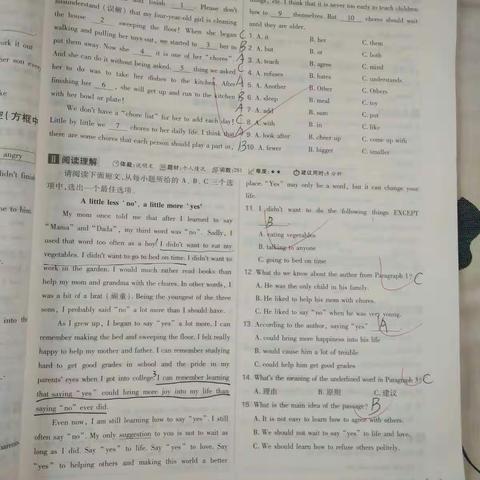 and finish 1 . Please don't
misunderstand (误解) that my four-year-old girl is cleaning
the house 2 sweeping the floor! When she began
walking and pulling her toys out, we started to 3 her to
put them away. Now she 4 it is one of her "chores".
And she can do it without being asked. 5 thing we asked
her to do was to take her dishes to the kitchen. After
finishing her 6 , she will get up and run to the kitchen
with her bowl or plate!
We don't have a "chore list" for her to add each day!
Little by little we 7 chores to her daily life. I think that
there are some chores that each person should play a part in,
things, etc. I think that it is never too early to teach children
how to 9 themselves. But 10 chores should wait
until they are older.
C 1. A. it B. her C. them
B 2. A. but B. or C. both
A 3. A. teach B. agree C. mind
C 4. A. refuses B. hates C. understands
A 5. A. Another B. Other C. Others
B 6. A. sleep B. meal C. toy
A 7. A. add B. sum C. put
C 8. A. with B. in C. like
A 9. A. look after B. cheer up C. come up with
B 10. A. fewer B. bigger C. smaller
II 阅读理解
体裁:说明文 题材:个人情况 词数:
难度:★★ 建议用时:
请阅读下面短文,从每小题所给的 A、B、C 三个选
项中,选出一个最佳选项。
A little less 'no', a little more 'yes'
My mom once told me that after I learned to say
"Mama" and "Dada", my third word was "no". Sadly, I
used that word too often as a boy. I didn't want to eat my
vegetables. I didn't want to go to bed on time. I didn't want to
work in the garden. I would much rather read books than
help my mom and grandma with the chores. In other words, I
was a bit of a brat (顽童). Being the youngest of the three
sons, I probably said "no" a lot more than I should have.
As I grew up, I began to say "yes" a lot more. I can
remember making the bed and sweeping the floor. I felt really
happy to help my mother and father. I can remember studying
hard to get good grades in school and the pride in my
parents' eyes when I got into college. I can remember learning
that saying "yes" could bring more joy into my life than
saying "no" ever did.
Even now, I am still learning how to say "yes". I still
often say "no". My only suggestion to you is not to wait as
long as I did. Say "yes" to life. Say "yes" to love. Say
"yes" to helping others and making this world a better
place. "Yes" may only be a word, but it can change your
life.
11. I didn't want to do the following things EXCEPT
B .
A. eating vegetables
B. talking to anyone
C. going to bed on time
12. What do we know about the author from Paragraph 1? C
A. He was the only child in his family.
B. He liked to help his mom with chores.
C. He liked to say "no" when he was very young.
13. According to the author, saying "yes" A .
A. could bring more happiness into his life
B. would cause him a lot of trouble
C. could help him get good grades
14. What's the meaning of the underlined word in Paragraph 3? C
A. 理由 B. 原则 C. 建议
15. What is the main idea of the passage? B
A. It is not easy to learn how to agree with others.
B. We should not wait to say "yes" to life and love.
C. We should learn how to refuse others politely.